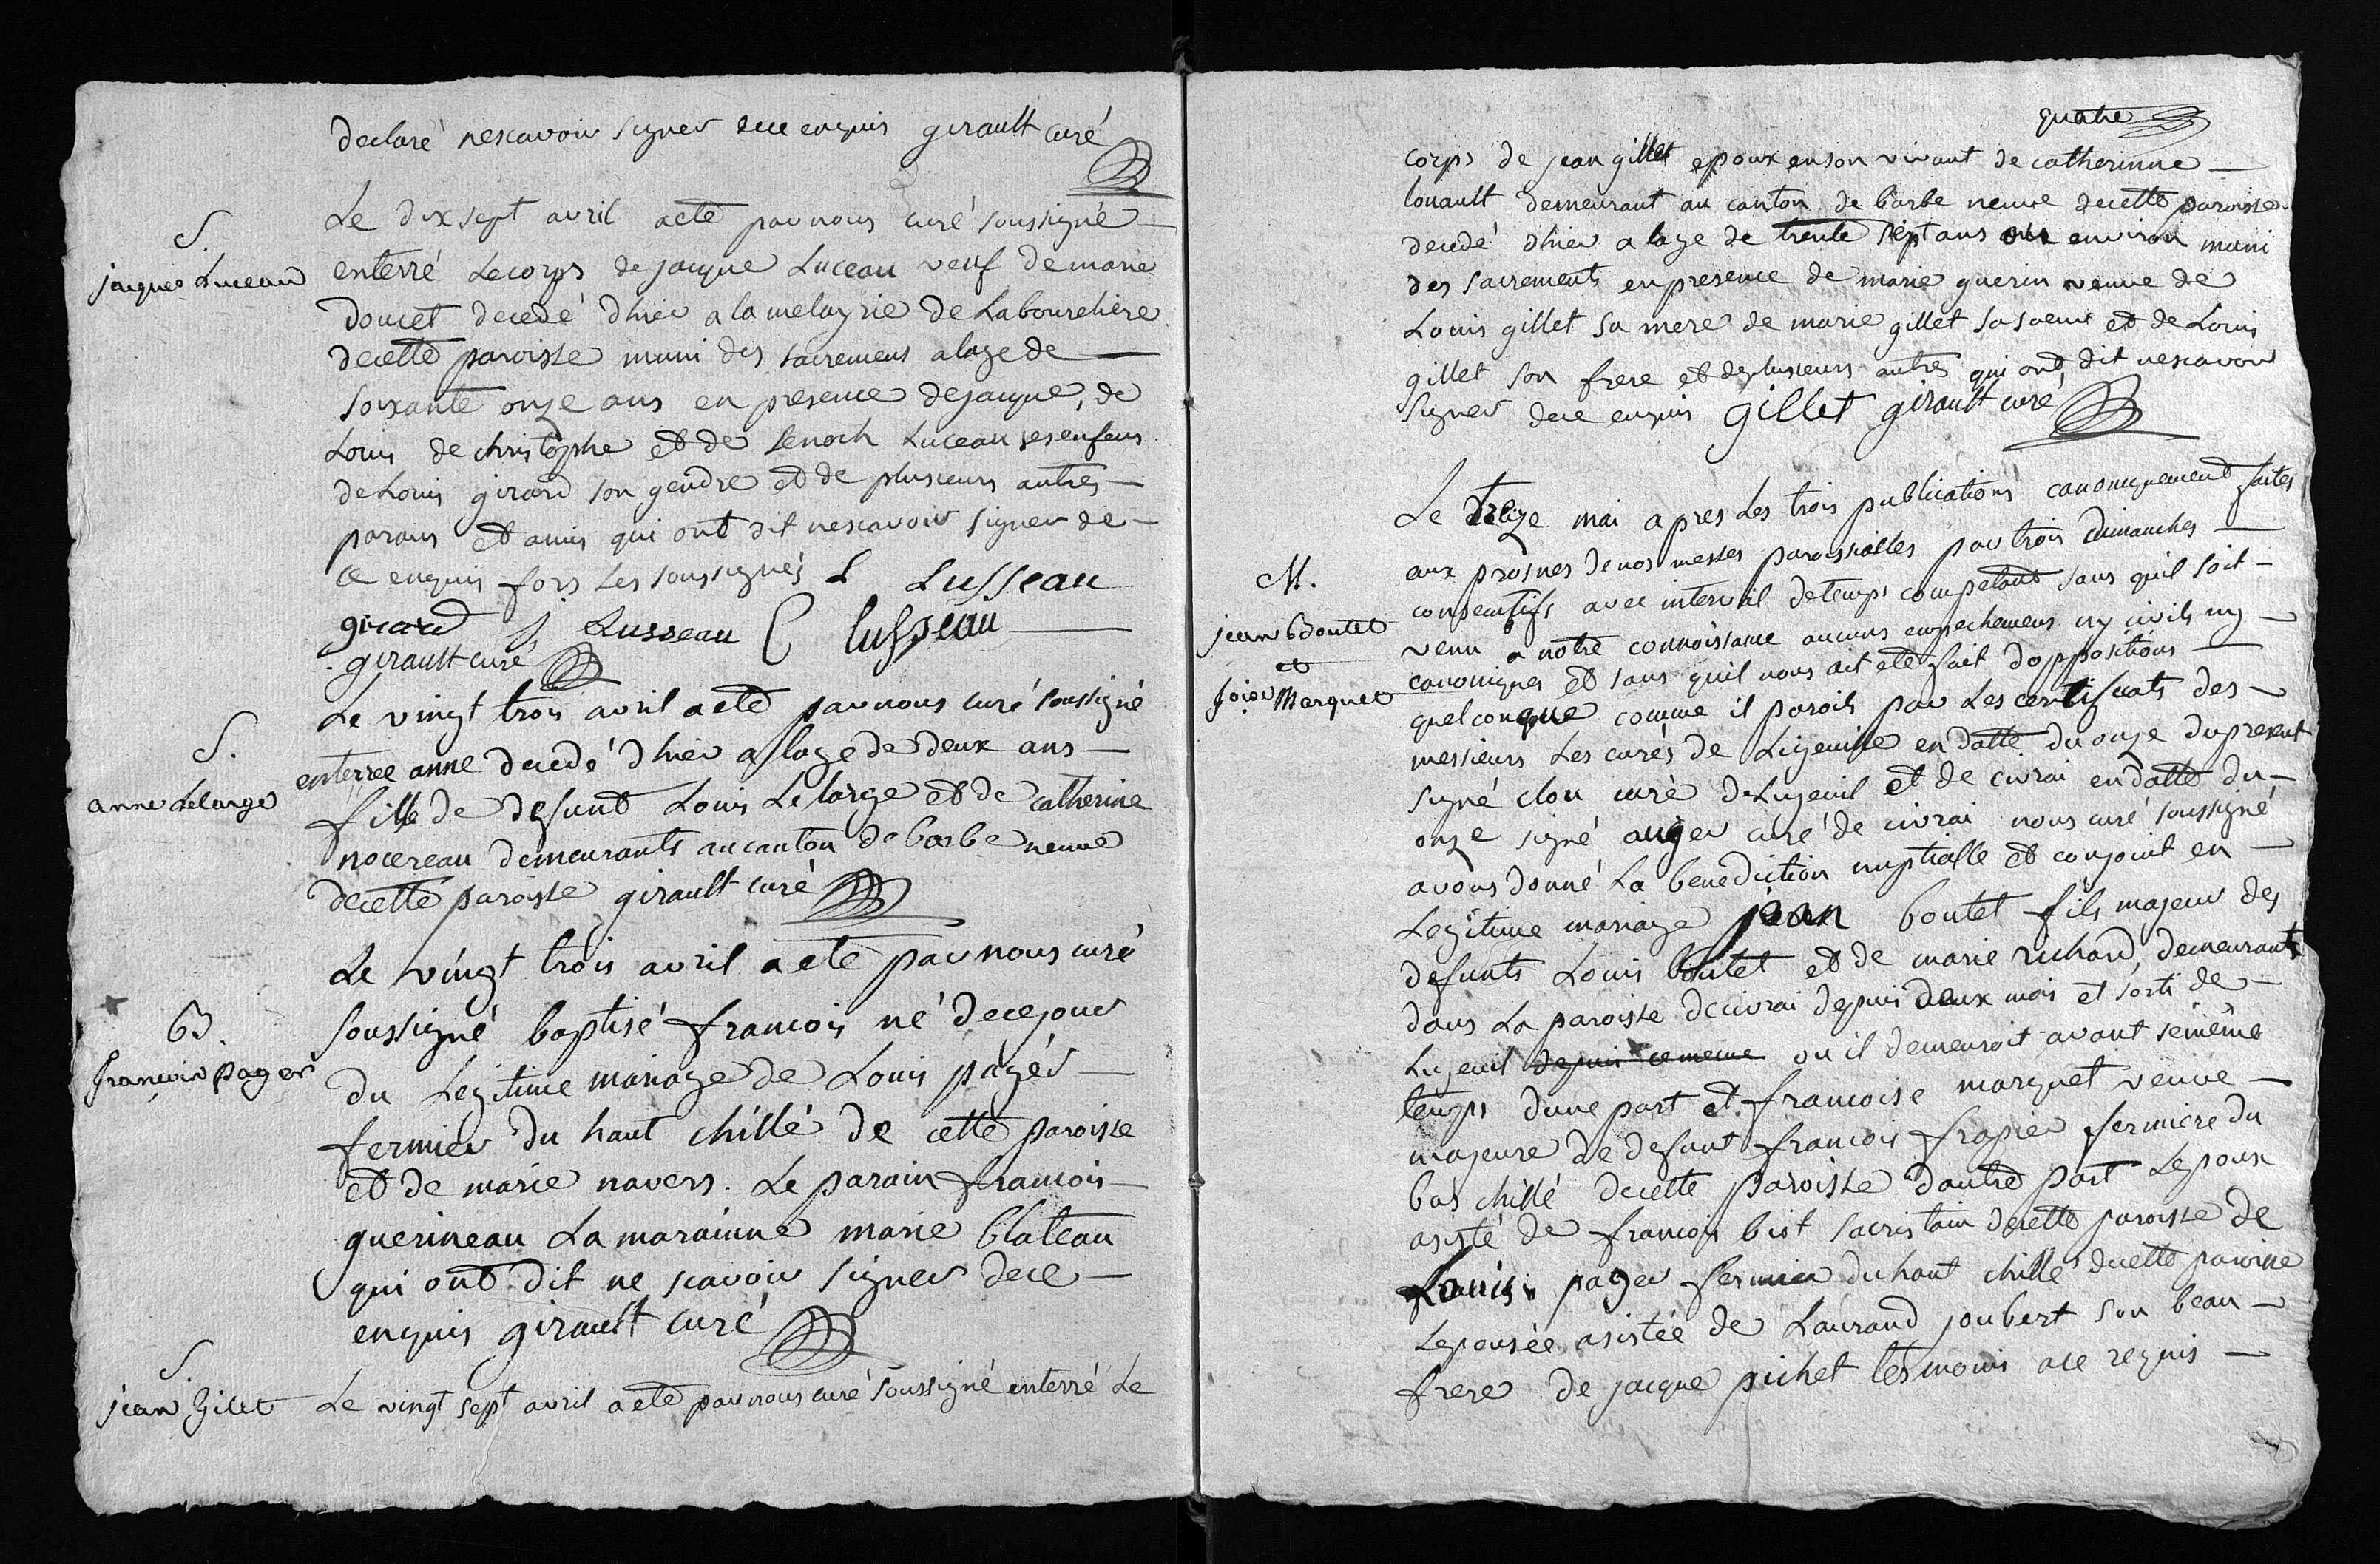 declaré nescavoir signer dece enquis girault curé
S.
jaques Luceau
Le dix sept avril aete par nous curé soussigné
enterré Le corps de jacque Luceau veuf de marie
doucet decedé dhier a la metayrie de Labourelière
decette paroisse muni des sacremens a lage de
soixante onze ans en presence dejacque, de
Louis de christophe et de Lenoch Luceau ses enfens
de Louis girard son gendre et de plusieurs autres
parans et amis qui ont dit nescavoir signer de
ce enquis fors Les soussignés L Lusseau
girard J. Lusseau C lusseau
girault curé
S.
anne Lelarge
Le vingt trois avril aeté par nous curé soussigné
enterree anne decedé dhier a lage de deux ans
fille de defunt Louis Le large et de catherine
nocereau demeurants au canton de barbe neuve
decette paroisse girault curé
B.
françois pager
Le vingt trois avril aeté par nous curé
soussigné baptisé francois né decejour
du Legitime mariage de Louis pagér
fermier du haut chillé de cette paroisse
et de marie navers. Le parain francois
guerineau La marainne marie blateau
qui ont dit ne scavoir signer dece
enquis girault curé
S.
jean Gilet
Le vingt sept avril aeté par nous curé soussigné enterré Le
quatre
corps de jean gillet epoux enson vivant de catherinne
louault demeurant au canton de barbe neuve decette paroisse
decedé dhier a lage de trente sept ans ou environ muni
des sacrements en presence de marie guerin veuve de
Louis gillet sa mere de marie gillet sa soeur et de Louis
gillet son frere et deplusieurs autres qui ont dit nescavoir
signer dece enquis gillet girault curé
M.
jean Boutet
et
Marquet
Le treize mai apres Les trois publications canoniquement faites
aux prosnes de nos messes paroissialles par trois dimanches
consecutifs avec intervail detemps competant sans quil soit
venu a notre connoissance aucuns empechemens ny civils ny
canoniques et sans quil nous ait eté fait doppositions
quelconque comme il paroit par Les certificats des
messieurs Les curés de en datte du onze dupresent
signé clou curé de Ligeuil et de civrai endatte du
onze signé auger curé de civrai nous curé soussigné
avons donné La benediction nuptialle et conjoint en
Legitime mariage jean boutet fils majeur des
defunts Louis boutet et de marie richard, demeurant
dans La paroisse decivrai depuis deux mois et sorti de
Ligeuil depuis ce meme ou il demeuroit avant semême
temps dune part et francoise marquet veuve
majeure de defunt francois frapier fermiere du
bas chillé decette paroisse dautre part Lepoux
asisté de francois biot sacristain decette paroisse de
Louis pager fermier du haut chillé decette paroisse
Lepousée asistée de Laurand joubert son beau
frere de jacque pichet tesmoins ace requis